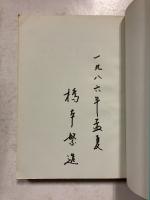 一九八六年孟夏
橋本繁進